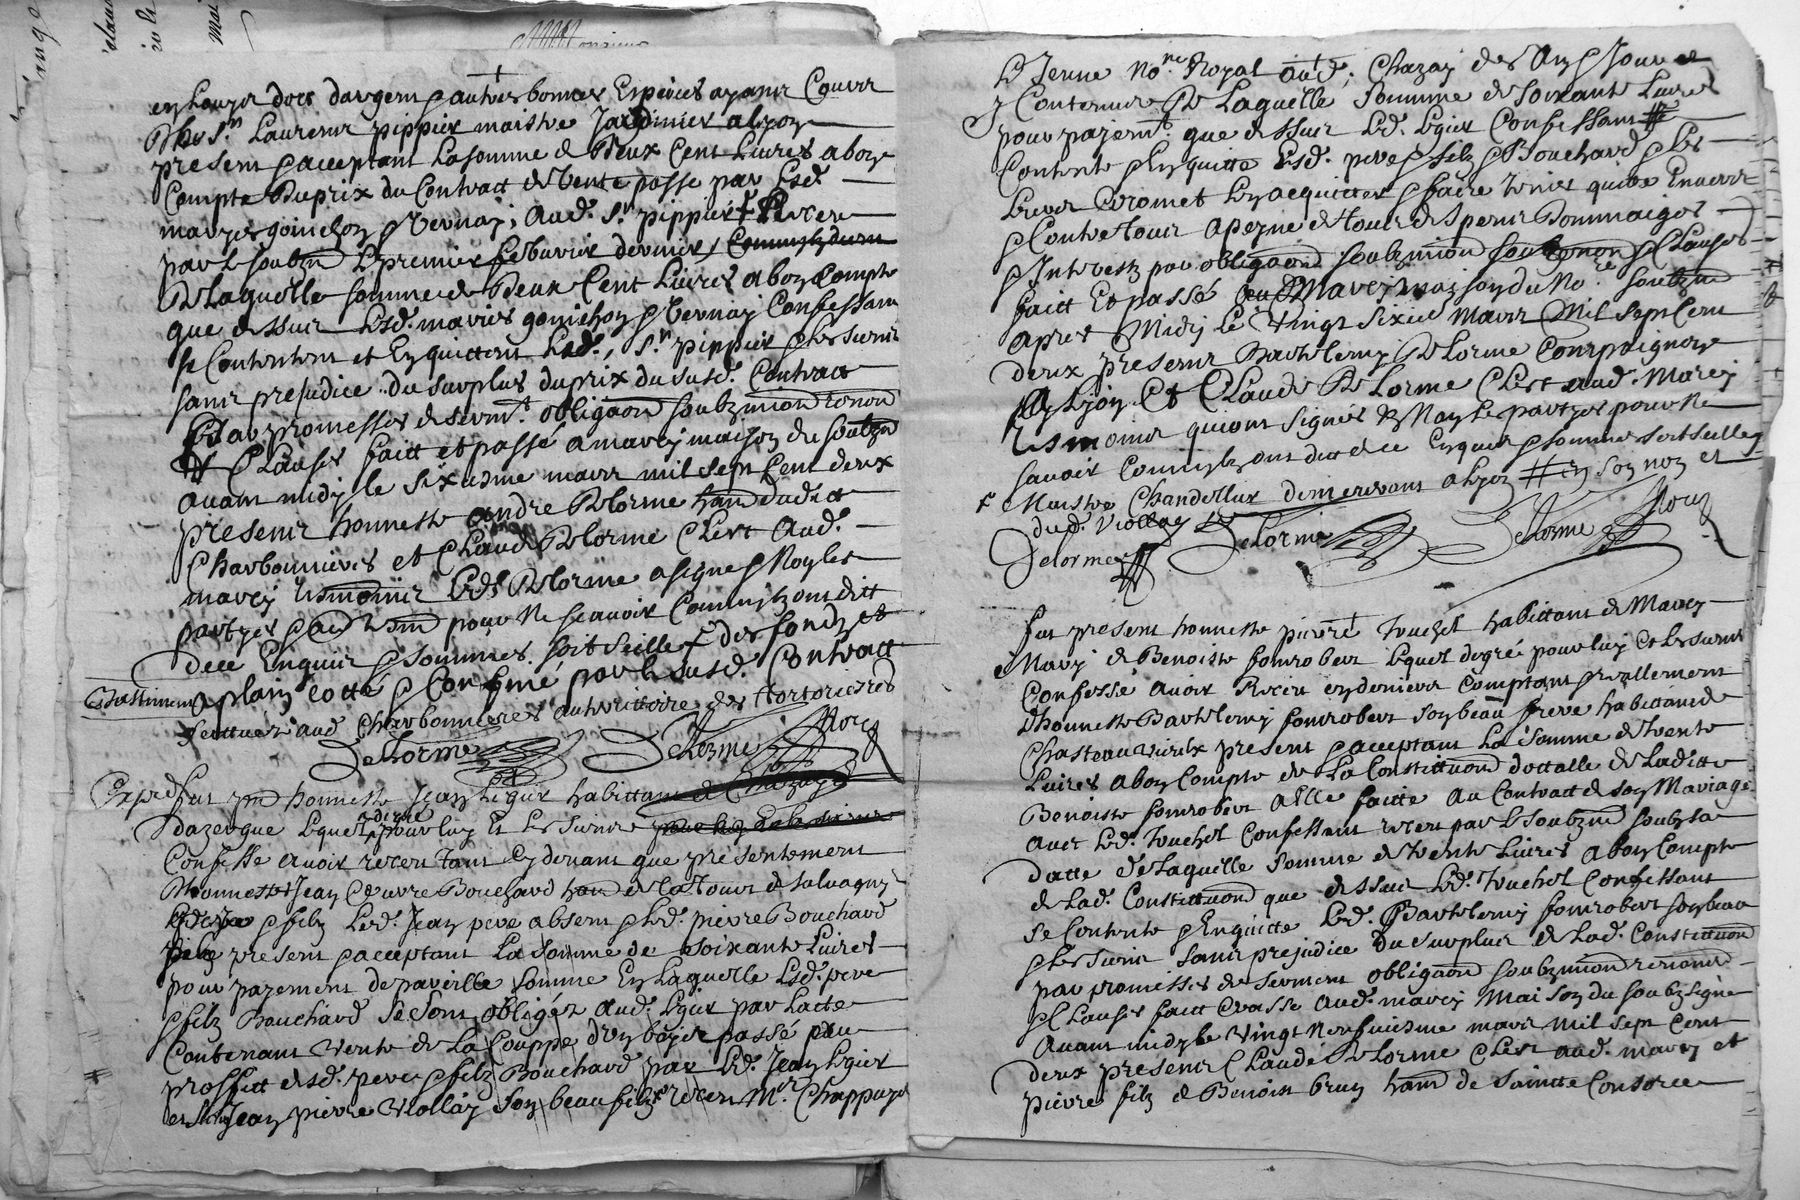 en Louys dors dargent & autres bonnes Espeices ayant Cours
Dhe Sr. Laurent pippier maistre Jardinier a lyon
present & acceptant la somme de Deux Cent Livres a bon
Compte Du prix du Contratt de Vente passé par Lesd.
mariez goinichon & Vernay, aud. Sr. pippier Receu
par le soubzné Le premier febvrier dernier
De Laquelle somme de Deux Cent Livres a bon Compte
que dessus Lesd. maries goinichon & Vernay Confessant
se Contentent et En quittent Led. Sr. pippier & les siens
sans prejudice du surplus du prix du susd. Contract
Par promesses de serment obligaon soubzmion renon
& Clauses faitt et passé a marcy maison du soubzné
avant midy le sixiesme mars mil sept Cent deux
presens honneste andre Delorme hant dudict
Charbonnieres et Claude Delorme Clerc Aud.
marcy tesmoins Led. Delorme a signe & Non les
partyes pour Ne scavoir Comm'ilz ont ditt
dece Enquis & Sommés soit scellé des fondz et
Bastimens plain cotté & Confiné par le susd. Contratt
scittuez aud Charbonnieres au territoire des
Delorme Delorme
Exped fut pnt honneste Jean Legier habittant
dazergue Lequel de gre pour luy Et Les siens
Confesse avoir receu tant Cy devant que presentement
Dhonnestes Jean & Pierre Bouchard hant de la Tour de Salvagny
pere & filz Led. Jean pere absent & Led. pierre Bouchard
filz present & acceptant La somme de soixante Livres
pour payement de pareille somme En Laquelle Lesd. pere
& filz Bouchard se sont obligéz aud. Legier par Lacte
Contenant Vente de La Couppe d'un boys passé au
proffitt desd. pere & filz Bouchard par Led. Jean Legier
et Jean pierre Viollay son beau filz receu Me. Chappuys
Le Jeune Nore. Royal aud. Chazay des An & Jour et
y Contenues De Laquelle somme de soixante Livres
pour payemt. que dessus Led. Legier Confessant
Contente & En quitte Lesd. pere & filz Bouchard & les
Leurs promet Les acquitter & faire tenir quitte Envers
& Contre tous a peyne de tous despens Dommaiges
& Interestz par obligaon soubzmion & Clauses
faitt Et passé a Marcy maison du Nore. soubzné
apres Midy Le Vingt six mars Mil sept Cent
deux presens Barthelemy Delorme Compaignon
a Lyon Et Claude Delorme Clerc aud. Marcy
tesmoins qui ont signés & Non Les partyes pour Ne
scavoir Comm'ilz ont dit de ce Enquis & sommés soit scellé
Maistre Chandellier demeurant a Lyon # En son nom et
dud. Viollay
Delorme Delorme Delorme
fut present honneste pierre Touchel habittant de Marcy
Mary de Benoiste fonrobert Lequel degré pour luy Et Les siens
Confesse avoir Receu en deniers Comptant reellement
Dhonneste Barthelemy fonrobert son beau frere habittant de
Chasteauvieulx present & acceptant La somme de trente
Livres a bon Compte de La Constituaon dottalle de Laditte
Benoiste fonrobert a Elle faitte Au Contratt de son Mariage
avec Led. Touchel Confessant receu par le soubzné soubz sa
datte De Laquelle somme de trente Livres a bon Compte
de Lad. Constituaon que dessus Led. Touchel Confessant
se Contente & En quitte Led. Barthelemy fonrobert son beau
& les siens sans prejudice Du surplus de Lad. Constituaon
par promisses de serment obligaon soubzmion renon
& Clauses faitt & Passé aud. marcy Maison du soubzsigné
Avant midy le Vingt Neufuiesme mars Mil sept Cent
deux presens Claude Delorme Clerc aud. marcy et
pierre filz de Benoist brun hant de Saintte Consorce